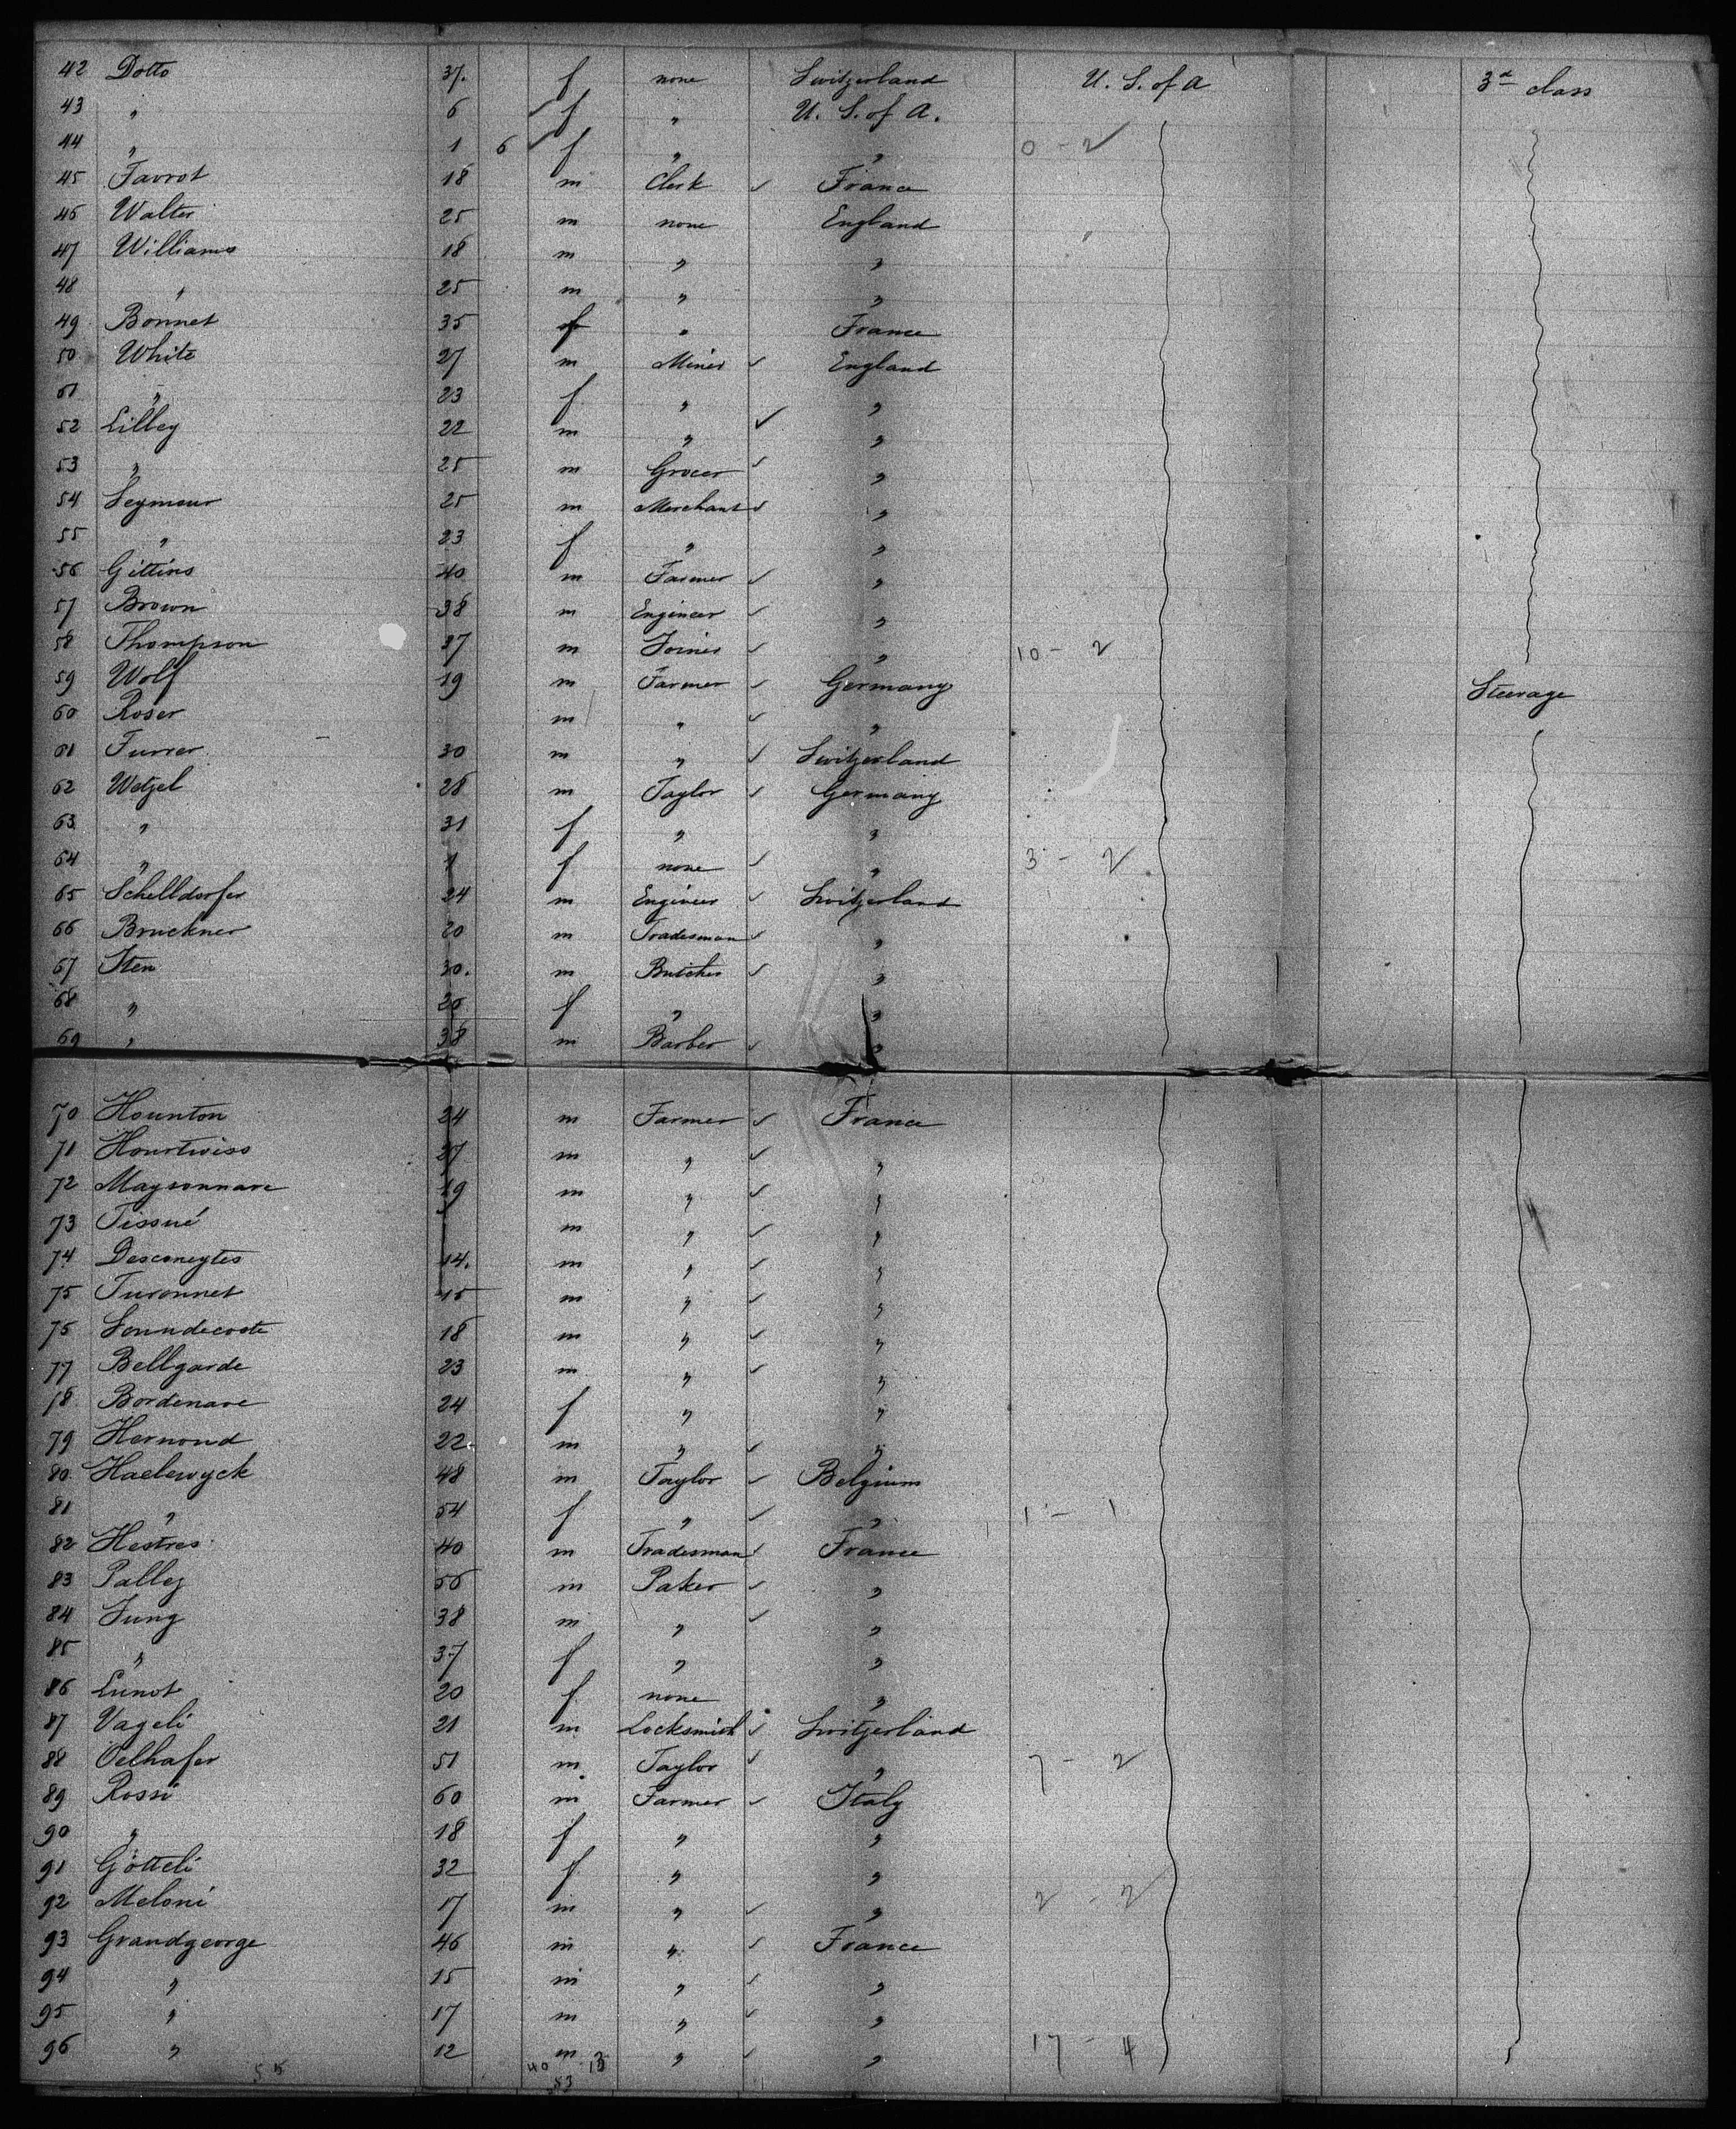 42 Dotto 37. f none Switzerland U. S. of A 3d class
43 " 6 f " U. S. of A.
44 " 1 6 f " " 0 - 2
45 Favrot 18 m Clerk ✓ France
46 Walter 25 m none England
47 Williams 18 m " "
48 " 25 m " "
49 Bonnet 35 f " France
50 White 27 m Miner ✓ England
51 " 23 f " "
52 Lilley 22 m " ✓ "
53 " 25 m Grocer ✓ "
54 Seymour 25 m Merchant ✓ "
55 " 23 f " "
56 Gittins 40 m Farmer ✓ "
57 Brown 38 m Engineer ✓ "
58 Thompson 37 m Joiner ✓ " 10 - 2
59 Wolf 19 m Farmer ✓ Germany Steerage
60 Roser m " ✓ "
61 Furrer 30 m " ✓ Switzerland
62 Wetzel 28 m Taylor ✓ Germany
63 " 31 f " "
64 " 1 f none ✓ " 3 - 2
65 Schelldorfer 24 m Engineer ✓ Switzerland
66 Bruckner 20 m Tradesman ✓ "
67 Sten 30. m Butcher ✓ "
68 " 20 f " "
69 " 38 m Barber ✓ "
70 Hounton 24 m Farmer ✓ France
71 Hourtwiss 27 m " ✓ "
72 Maysonnave 19 m " ✓ "
73 Tissné m " ✓ "
74 14. m " ✓ "
75 Turonnet 15 m " ✓ "
75 18 m " ✓ "
77 Bellgarde 23 m " ✓ "
78 Bordenave 24 f " "
79 Hernond 22 m " ✓ "
80 Haelewyck 48 m Taylor ✓ Belgium
81 " 54 f " ✓ " 1 - 1
82 Hestres 40 m Tradesman ✓ France
83 Palley 55 m Paker ✓ "
84 Jung 38 m " ✓ "
85 " 37 f " "
86 Lunot 20 f none "
87 Vageli 21 m Locksmith ✓ Switzerland
88 Oelhafer 51 m Taylor ✓ " 7 - 2
89 Rossi 60 m Farmer ✓ Italy
90 " 18 f " "
91 Götteli 32 f " "
92 Meloni 17 m " ✓ " 2 - 2
93 Grandgeorge 46 m " ✓ France
94 " 15 m " ✓ "
95 " 17 m " ✓ "
96 " 12 m " ✓ " 17 - 4
55 40 13
53